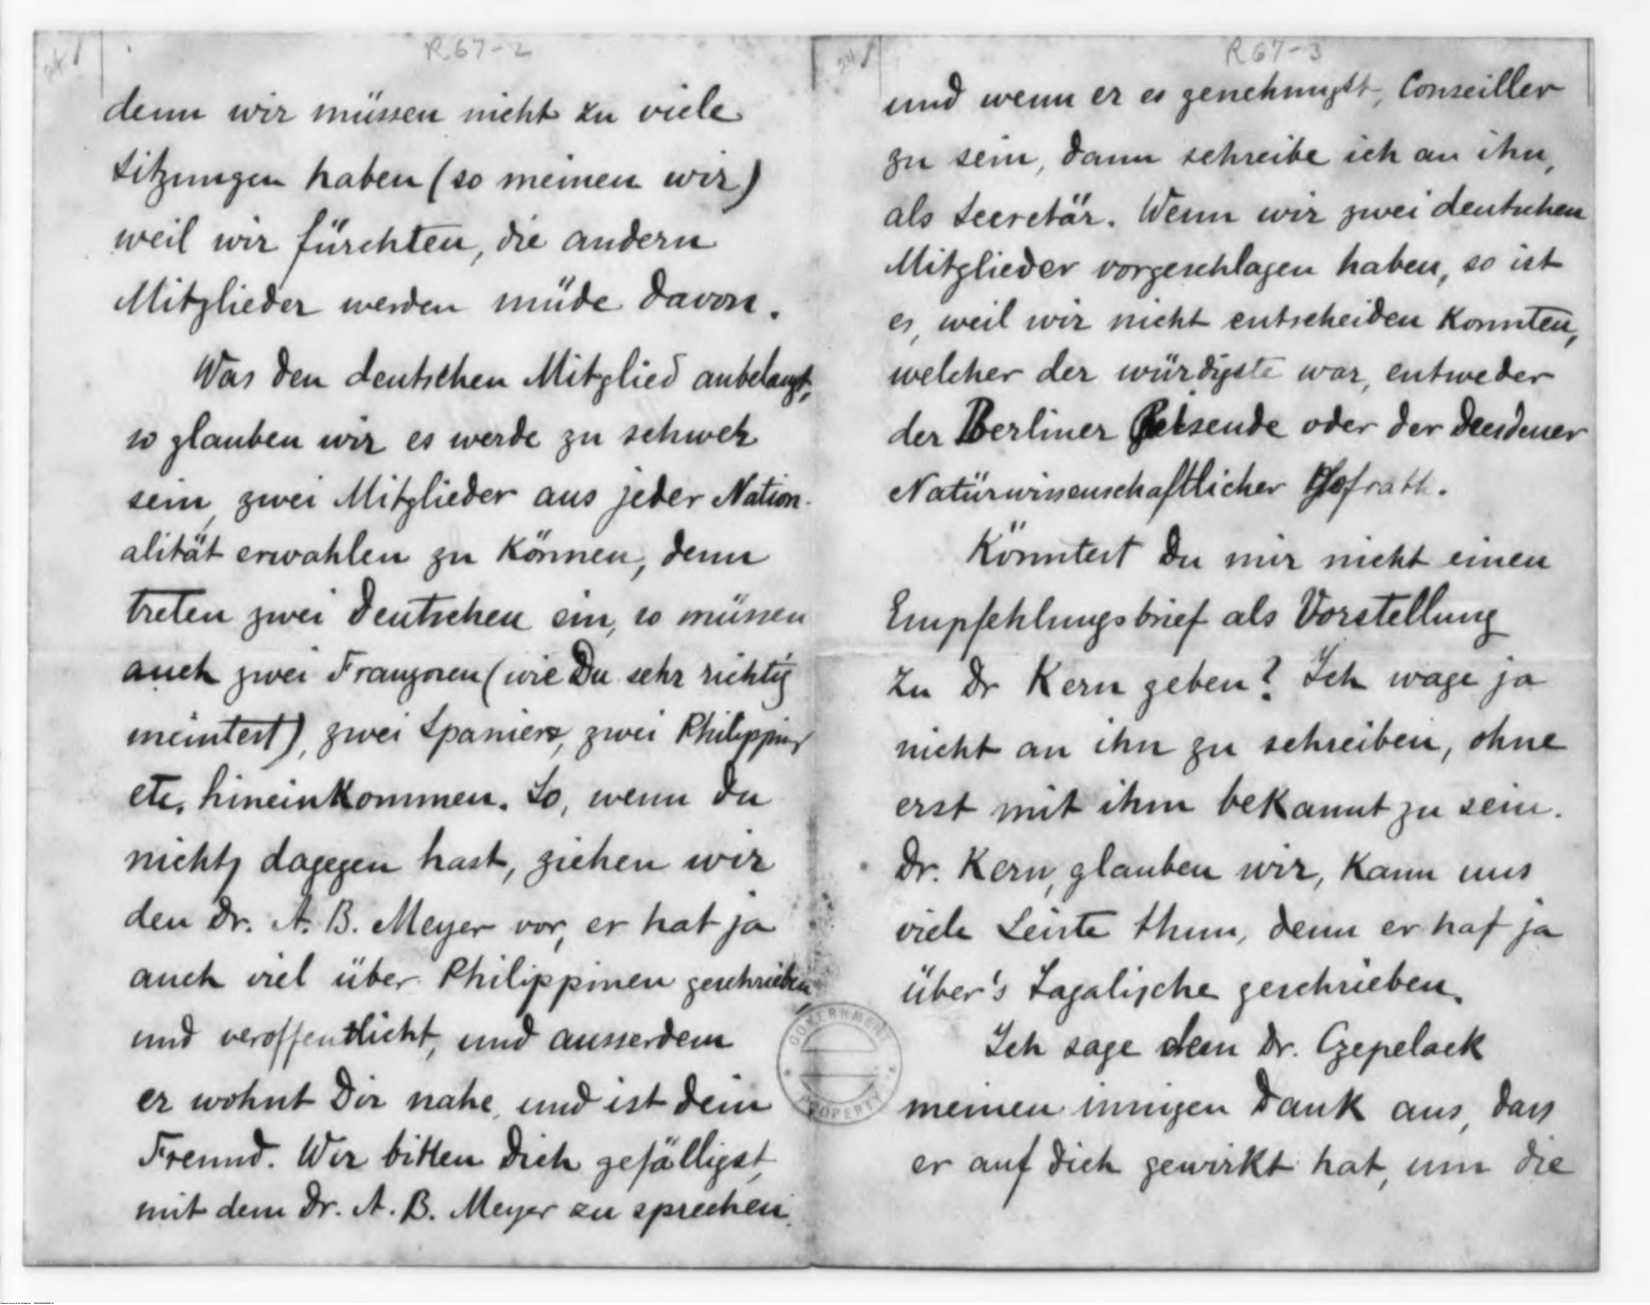 R 67-2
denn wir müssen nicht zu viele
Sitzungen haben (so meinen wir)
weil wir fürchten, die andern
Mitglieder werden müde davon.
Was den deutschen Mitglied anbelangt,
so glauben wir es werde zu schwer
sein, zwei Mitglieder aus jeder Nation-
alität erwahlen zu können, denn
treten zwei Deutschen ein, so müssen
auch zwei Franzosen (wie Du sehr richtig
meintest), zwei Spanier, zwei Philippiner
etc. hineinkommen. So, wenn du
nichts dagegen hast, ziehen wir
den Dr. A. B. Meyer vor, er hat ja
auch viel über Philippinen geschrieben
und veroffentlicht, und ausserdem
er wohnt Dir nahe, und ist dein
Freund. Wir bitten Dich gefälligst,
mit dem Dr. A. B. Meyer zu sprechen
R 67-3
und wenn er es genehmigt, Conseiller
zu sein, dann schreibe ich an ihn,
als Secretär. Wenn wir zwei deutschen
Mitglieder vorgeschlagen haben, so ist
es, weil wir nicht entscheiden konnten,
welcher der würdigste war, entweder
der Berliner Reisende oder der Dresdener
Natürwissenschaftlicher Hofrath.
Könntest Du mir nicht einen
Empfehlungsbrief als Vorstellung
zu Dr Kern geben? Ich wage ja
nicht an ihn zu schreiben, ohne
erst mit ihm bekannt zu sein.
Dr. Kern, glauben wir, kann uns
viele Leiste thun, denn er hat ja
über's Tagalische geschrieben.
Ich sage dem Dr. Czepelack
meinen innigen Dank aus, dass
er auf dich gewirkt hat, um die
GOVERNMENT
PROPERTY